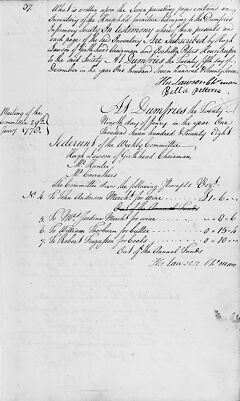 37.
What is written upon the Seven preceeding pages contains an
Inventory of the Household furniture belonging to the Dumfries
Infirmary Society In Testimony whereof these presents and
each page of the said Inventory Are Subscribed by Hugh
Lawson of Girthhead Chairman and Housekeeper
to the said Society At Dumfries the Twenty fifth day of
December in the year One thousand Seven hundred &
Ho: Lawson Ch: man
Bella
Meeting of the
Committee 29th
Jany 1778.
At Dumfries the Twenty
Ninth day of Janry in the year One
Thousand Seven hundred & Seventy Eight
Sederunt of the Weekly Committee
Hugh Lawson of Girthhead Chairman,
Mr Hunter
Mr Carruthers
The Committee drew the following Precepts Viz:
No 4 To John Anderson Mercht for wine £1-6-
Out of the Annual Funds
5 To Mrs Jardine Mercht for wine -0-6
6 To William Thorburn for Butter 0-15-4
7 To Robert Ferguson for Coals 0-10-
Out of the Annual Funds
Ho: Lawson Ch: man